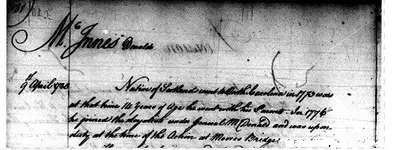 McInnes Donald
9th April 1788
Native of Scotland went to North Carolina in 1773 was
at that time 12 Years of Age he went with his Parents In 1776
he joined the loyalists under General McDonald and was upon
duty at the time of the Action at Moores Bridge